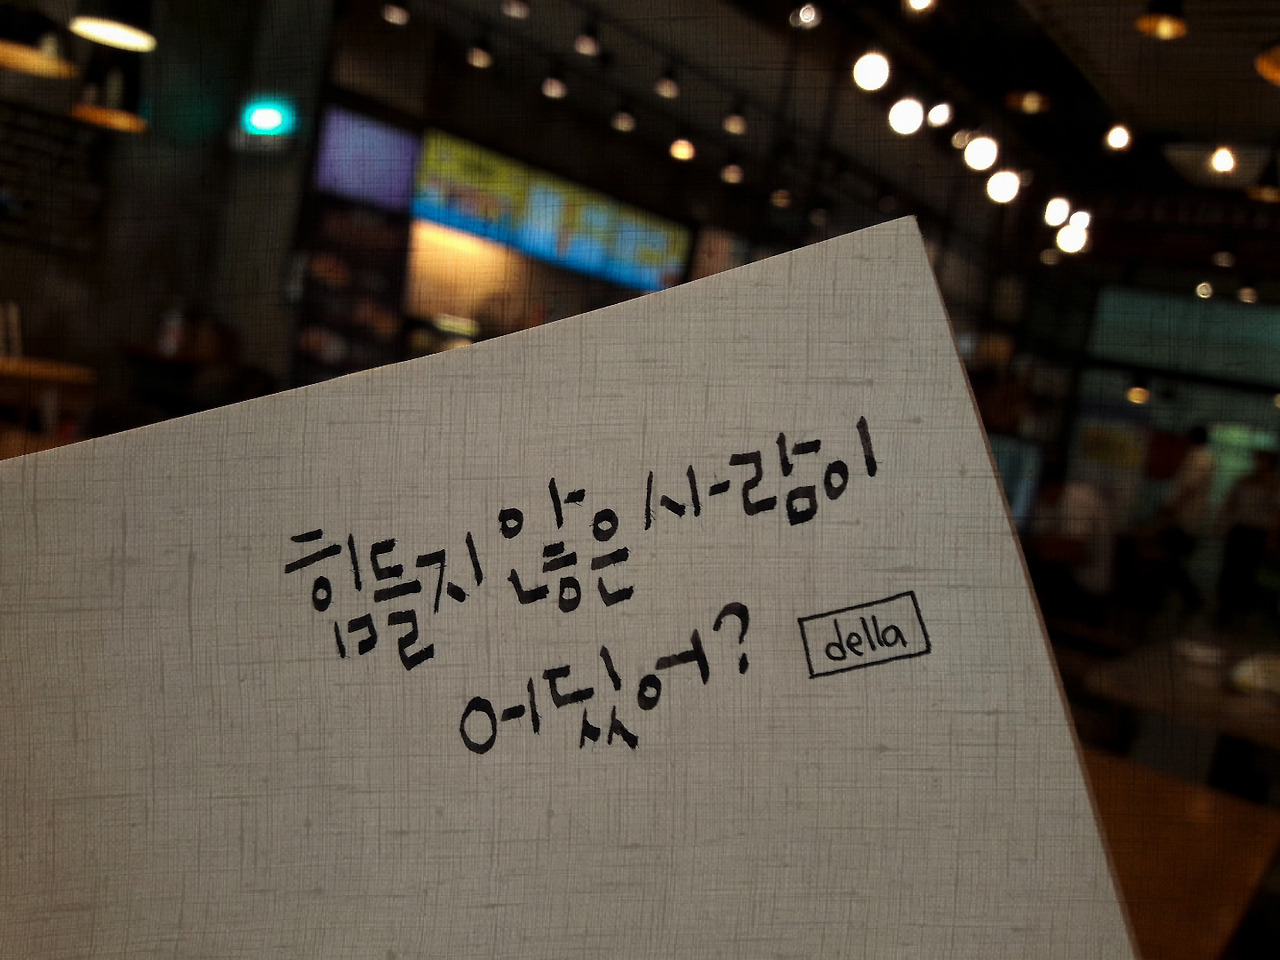 힘들지 않은 사람이
어딨어? della